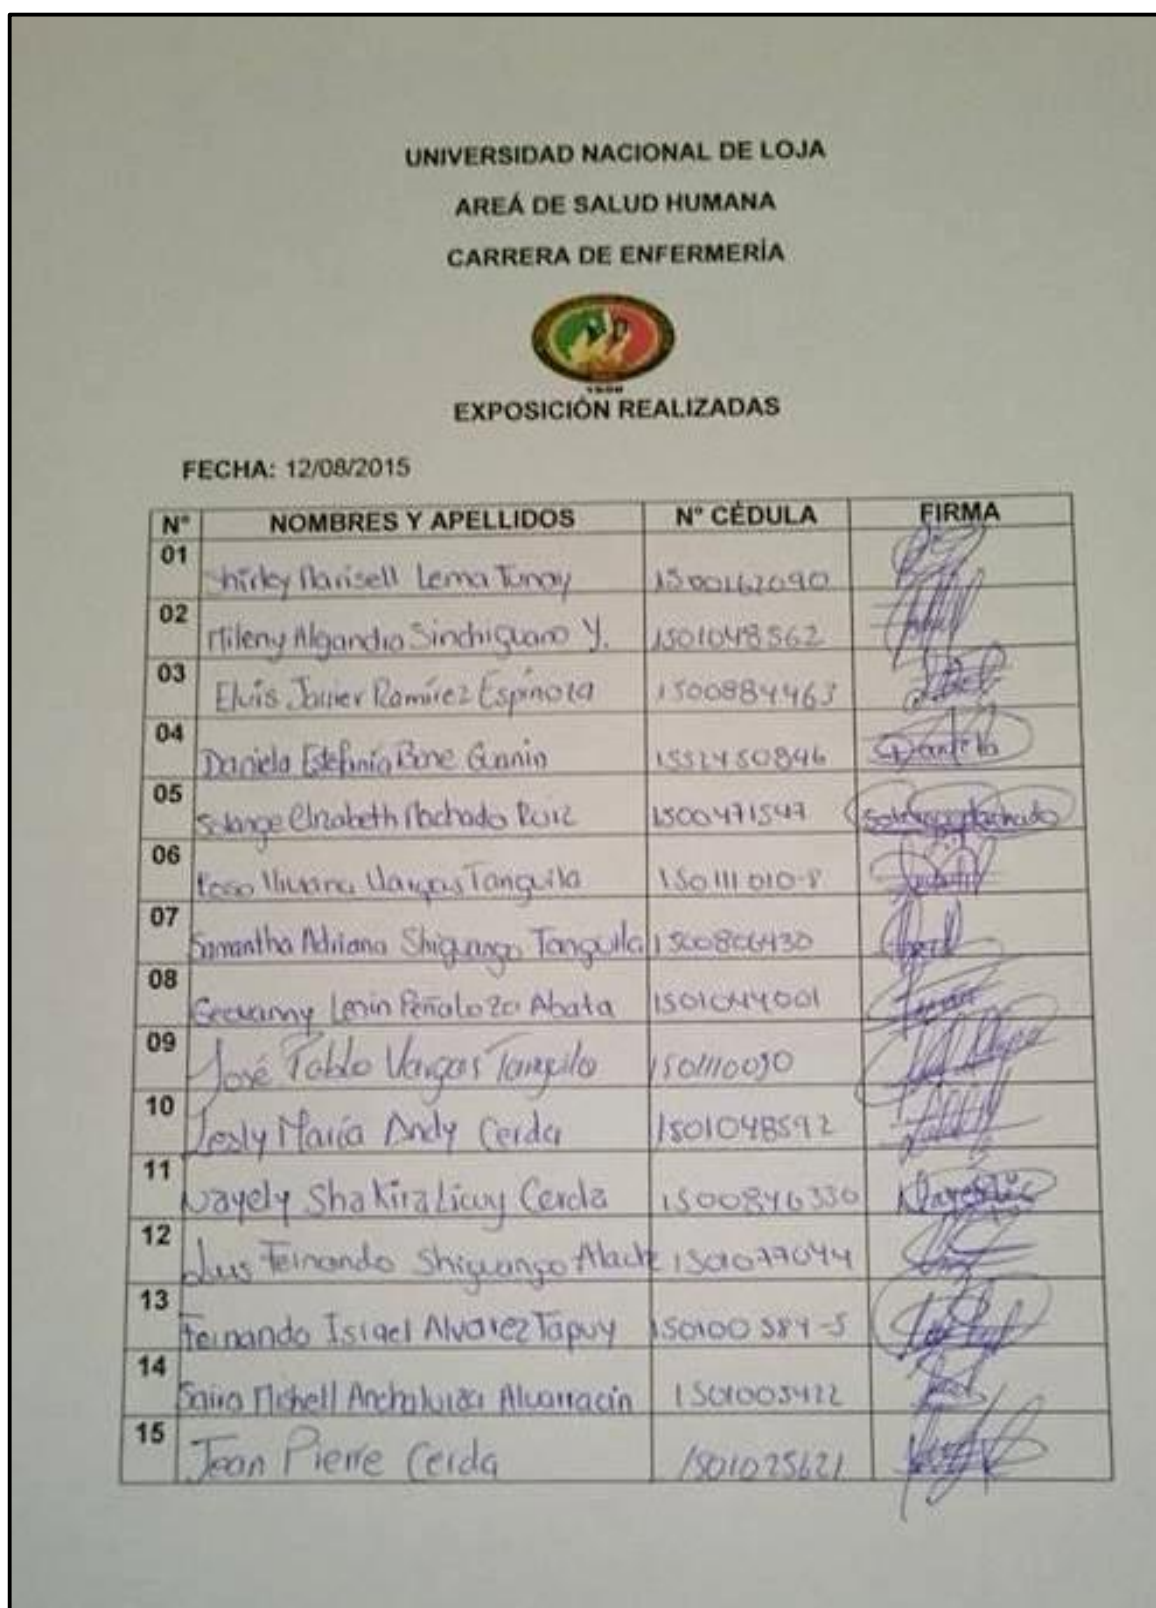 UNIVERSIDAD NACIONAL DE LOJA
AREÁ DE SALUD HUMANA
CARRERA DE ENFERMERÍA
EXPOSICIÓN REALIZADAS
FECHA: 12/08/2015
N° NOMBRES Y APELLIDOS N° CÉDULA FIRMA
01 Shirley Marisell Lema Tunay 1500162090
02 Mileny Algandra Sinchiguano Y. 1501048562
03 Elvis Javier Ramírez Espinoza 1500884463
04 Daniela Estefanía Bone Guanin 1552450846 Daniela
05 Solange Elizabeth Machado Ruiz 1500471547 Solange Machado
06 Rosa Viviana Vargas Tanguila 150111010-8
07 Samantha Adriana Shiguango Tanguila 1500806430
08 Geovanny Lenin Peñaloza Abata 1501044001
09 José Pablo Vargas Tanguila 1501110090
10 Lesly María Andy Cerda 1501048592
11 Nayely Shakira Licuy Cerda 1500846330
12 Luis Fernando Shiguango 1501077044
13 Fernando Israel Alvarez Tapuy 150100584-5
14 Saira Mishell Andaluiza Alvarracín 1501005422
15 Jean Pierre Cerda 1501025621